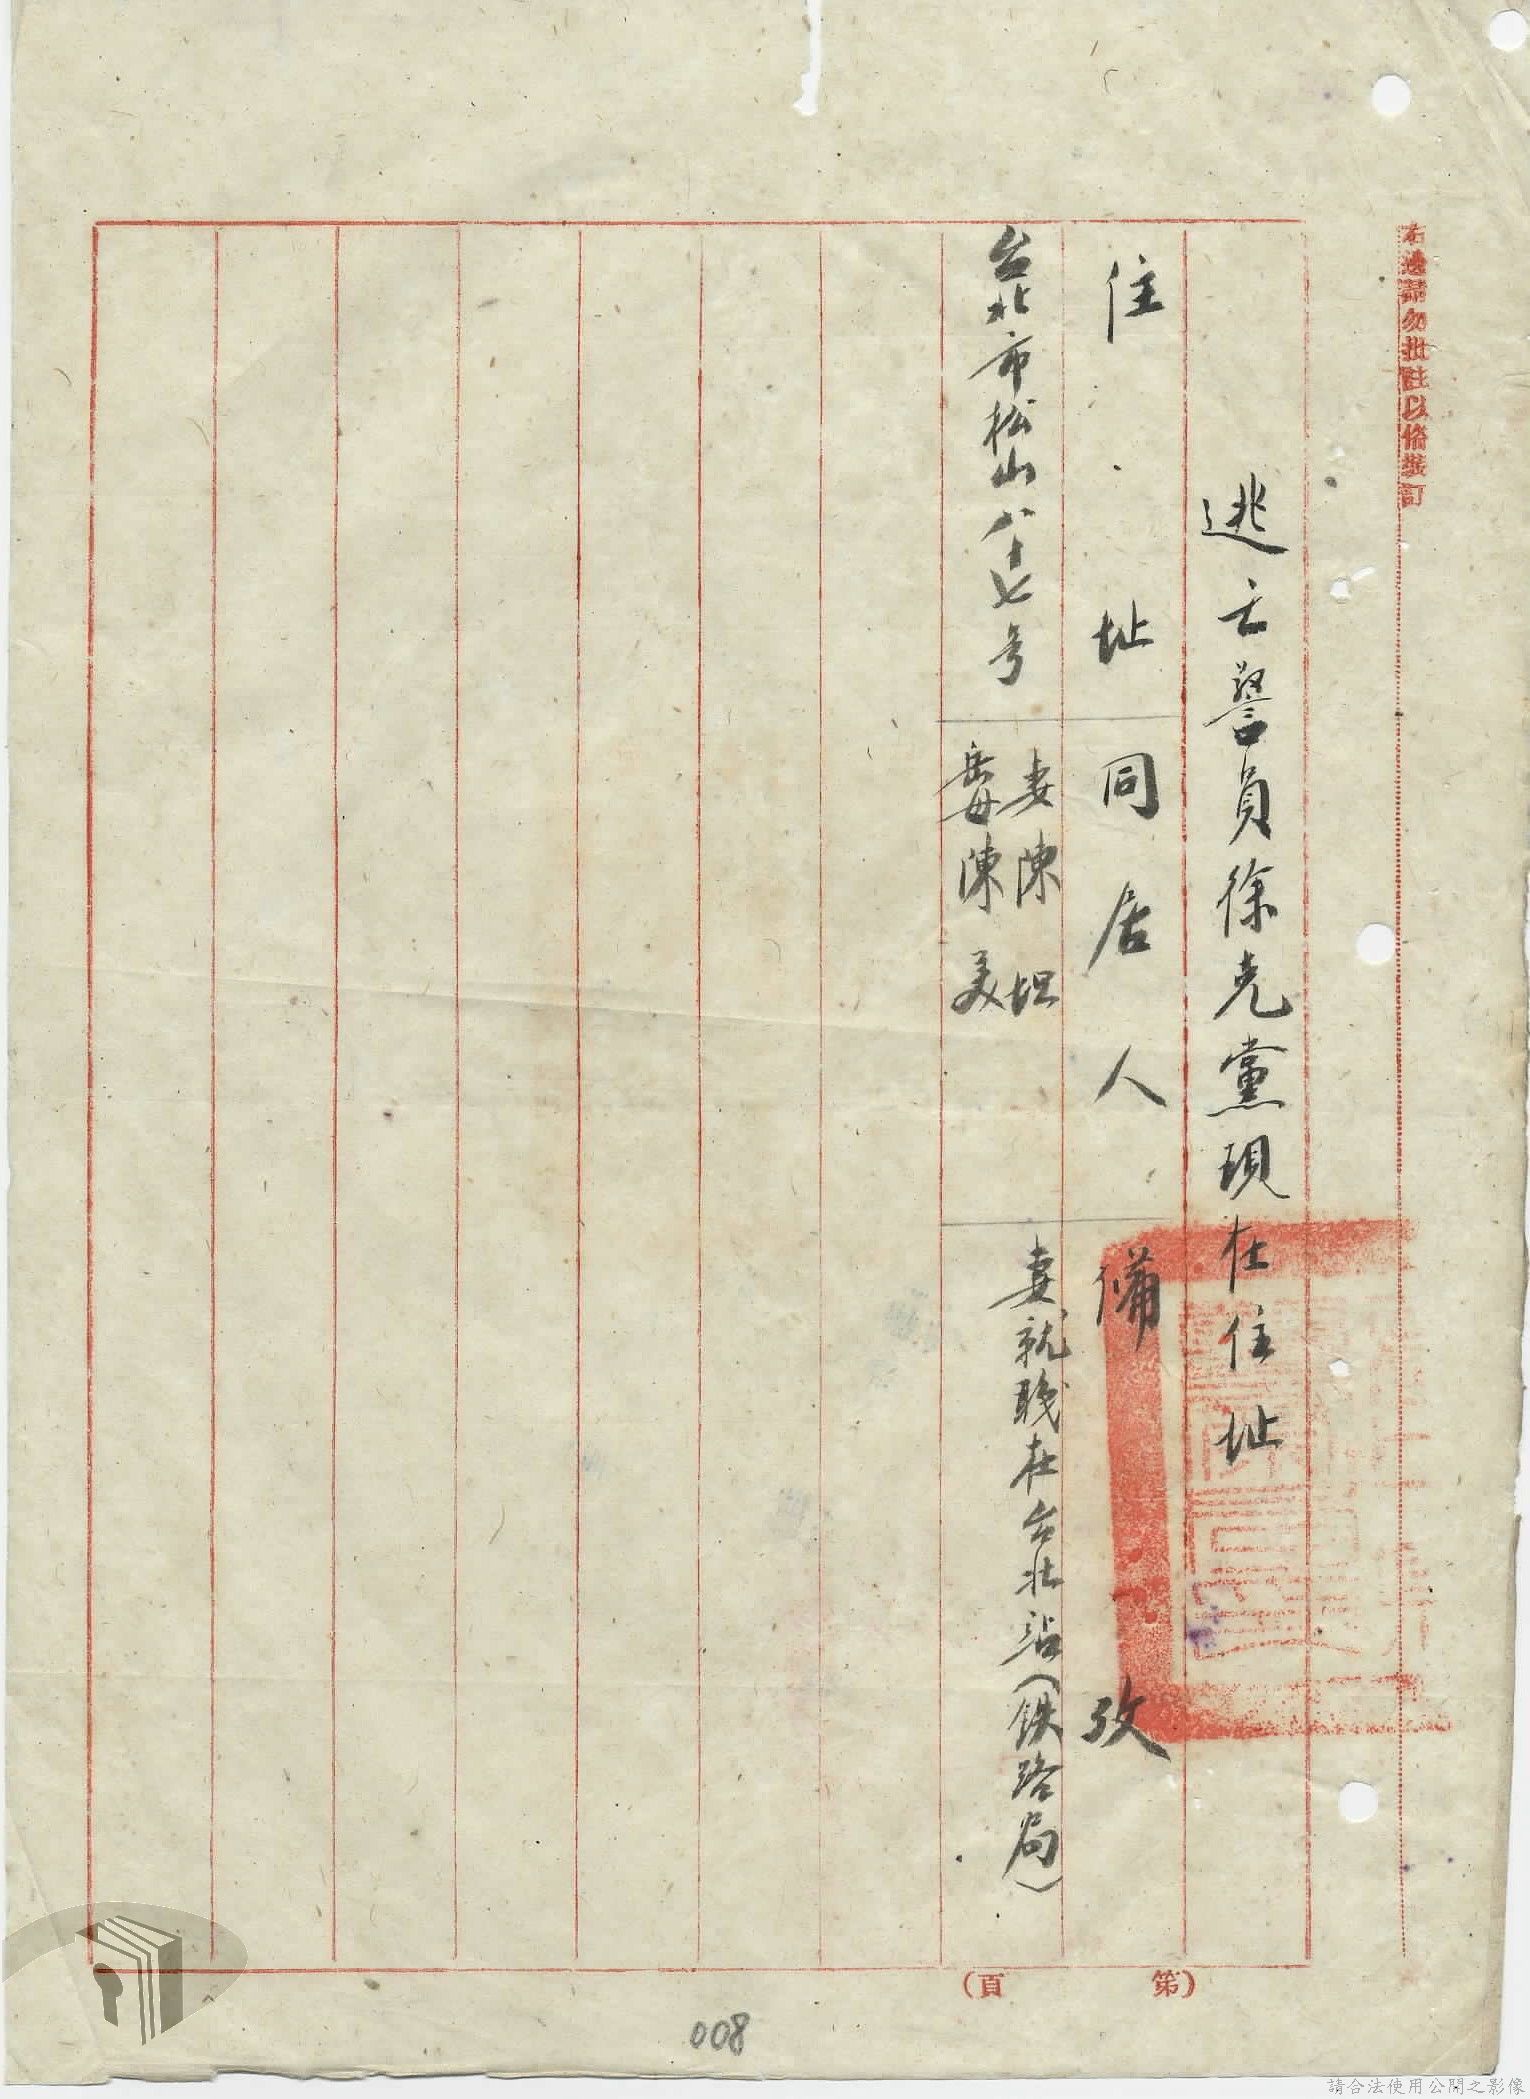 右邊請勿批註以俻裝訂
逃亡警員徐克黨現在住址
住址
同居人
備攷
台北市松山八十七号
妻陳坦
岳母陳美
妻就職在台北站(鉄路局)
(第
頁)
008
請合法使用公開之影像